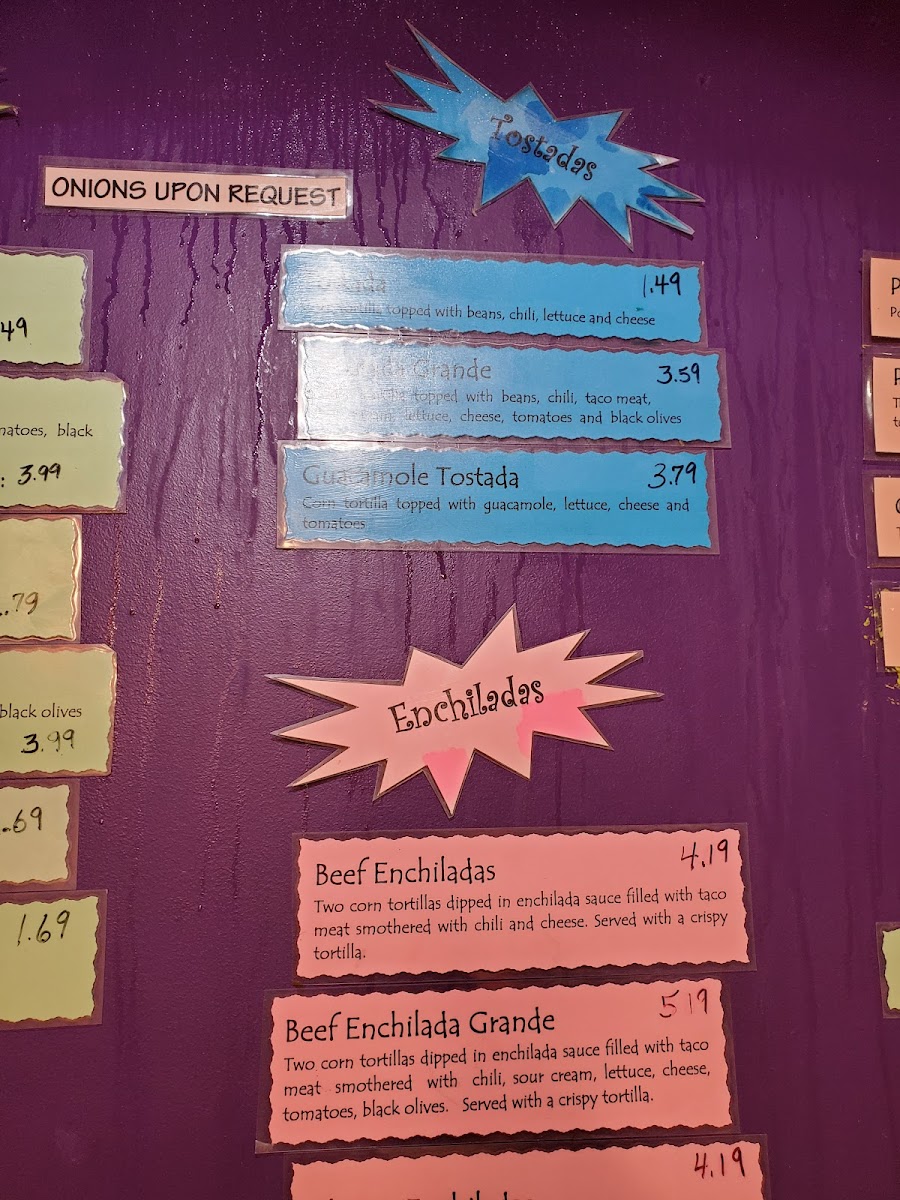 Tostadas
ONIONS UPON REQUEST
1.49
topped with beans, chili, lettuce and cheese
Grande 3.59
topped with beans, chili, taco meat,
lettuce, cheese, tomatoes and black olives
Guacamole Tostada 3.79
Corn tortilla topped with guacamole, lettuce, cheese and
tomatoes
49
black
: 3.99
.79
black olives
3.99
.69
1.69
Enchiladas
Beef Enchiladas 4.19
Two corn tortillas dipped in enchilada sauce filled with taco
meat smothered with chili and cheese. Served with a crispy
tortilla.
Beef Enchilada Grande 5 19
Two corn tortillas dipped in enchilada sauce filled with taco
meat smothered with chili, sour cream, lettuce, cheese,
tomatoes, black olives. Served with a crispy tortilla.
4.19